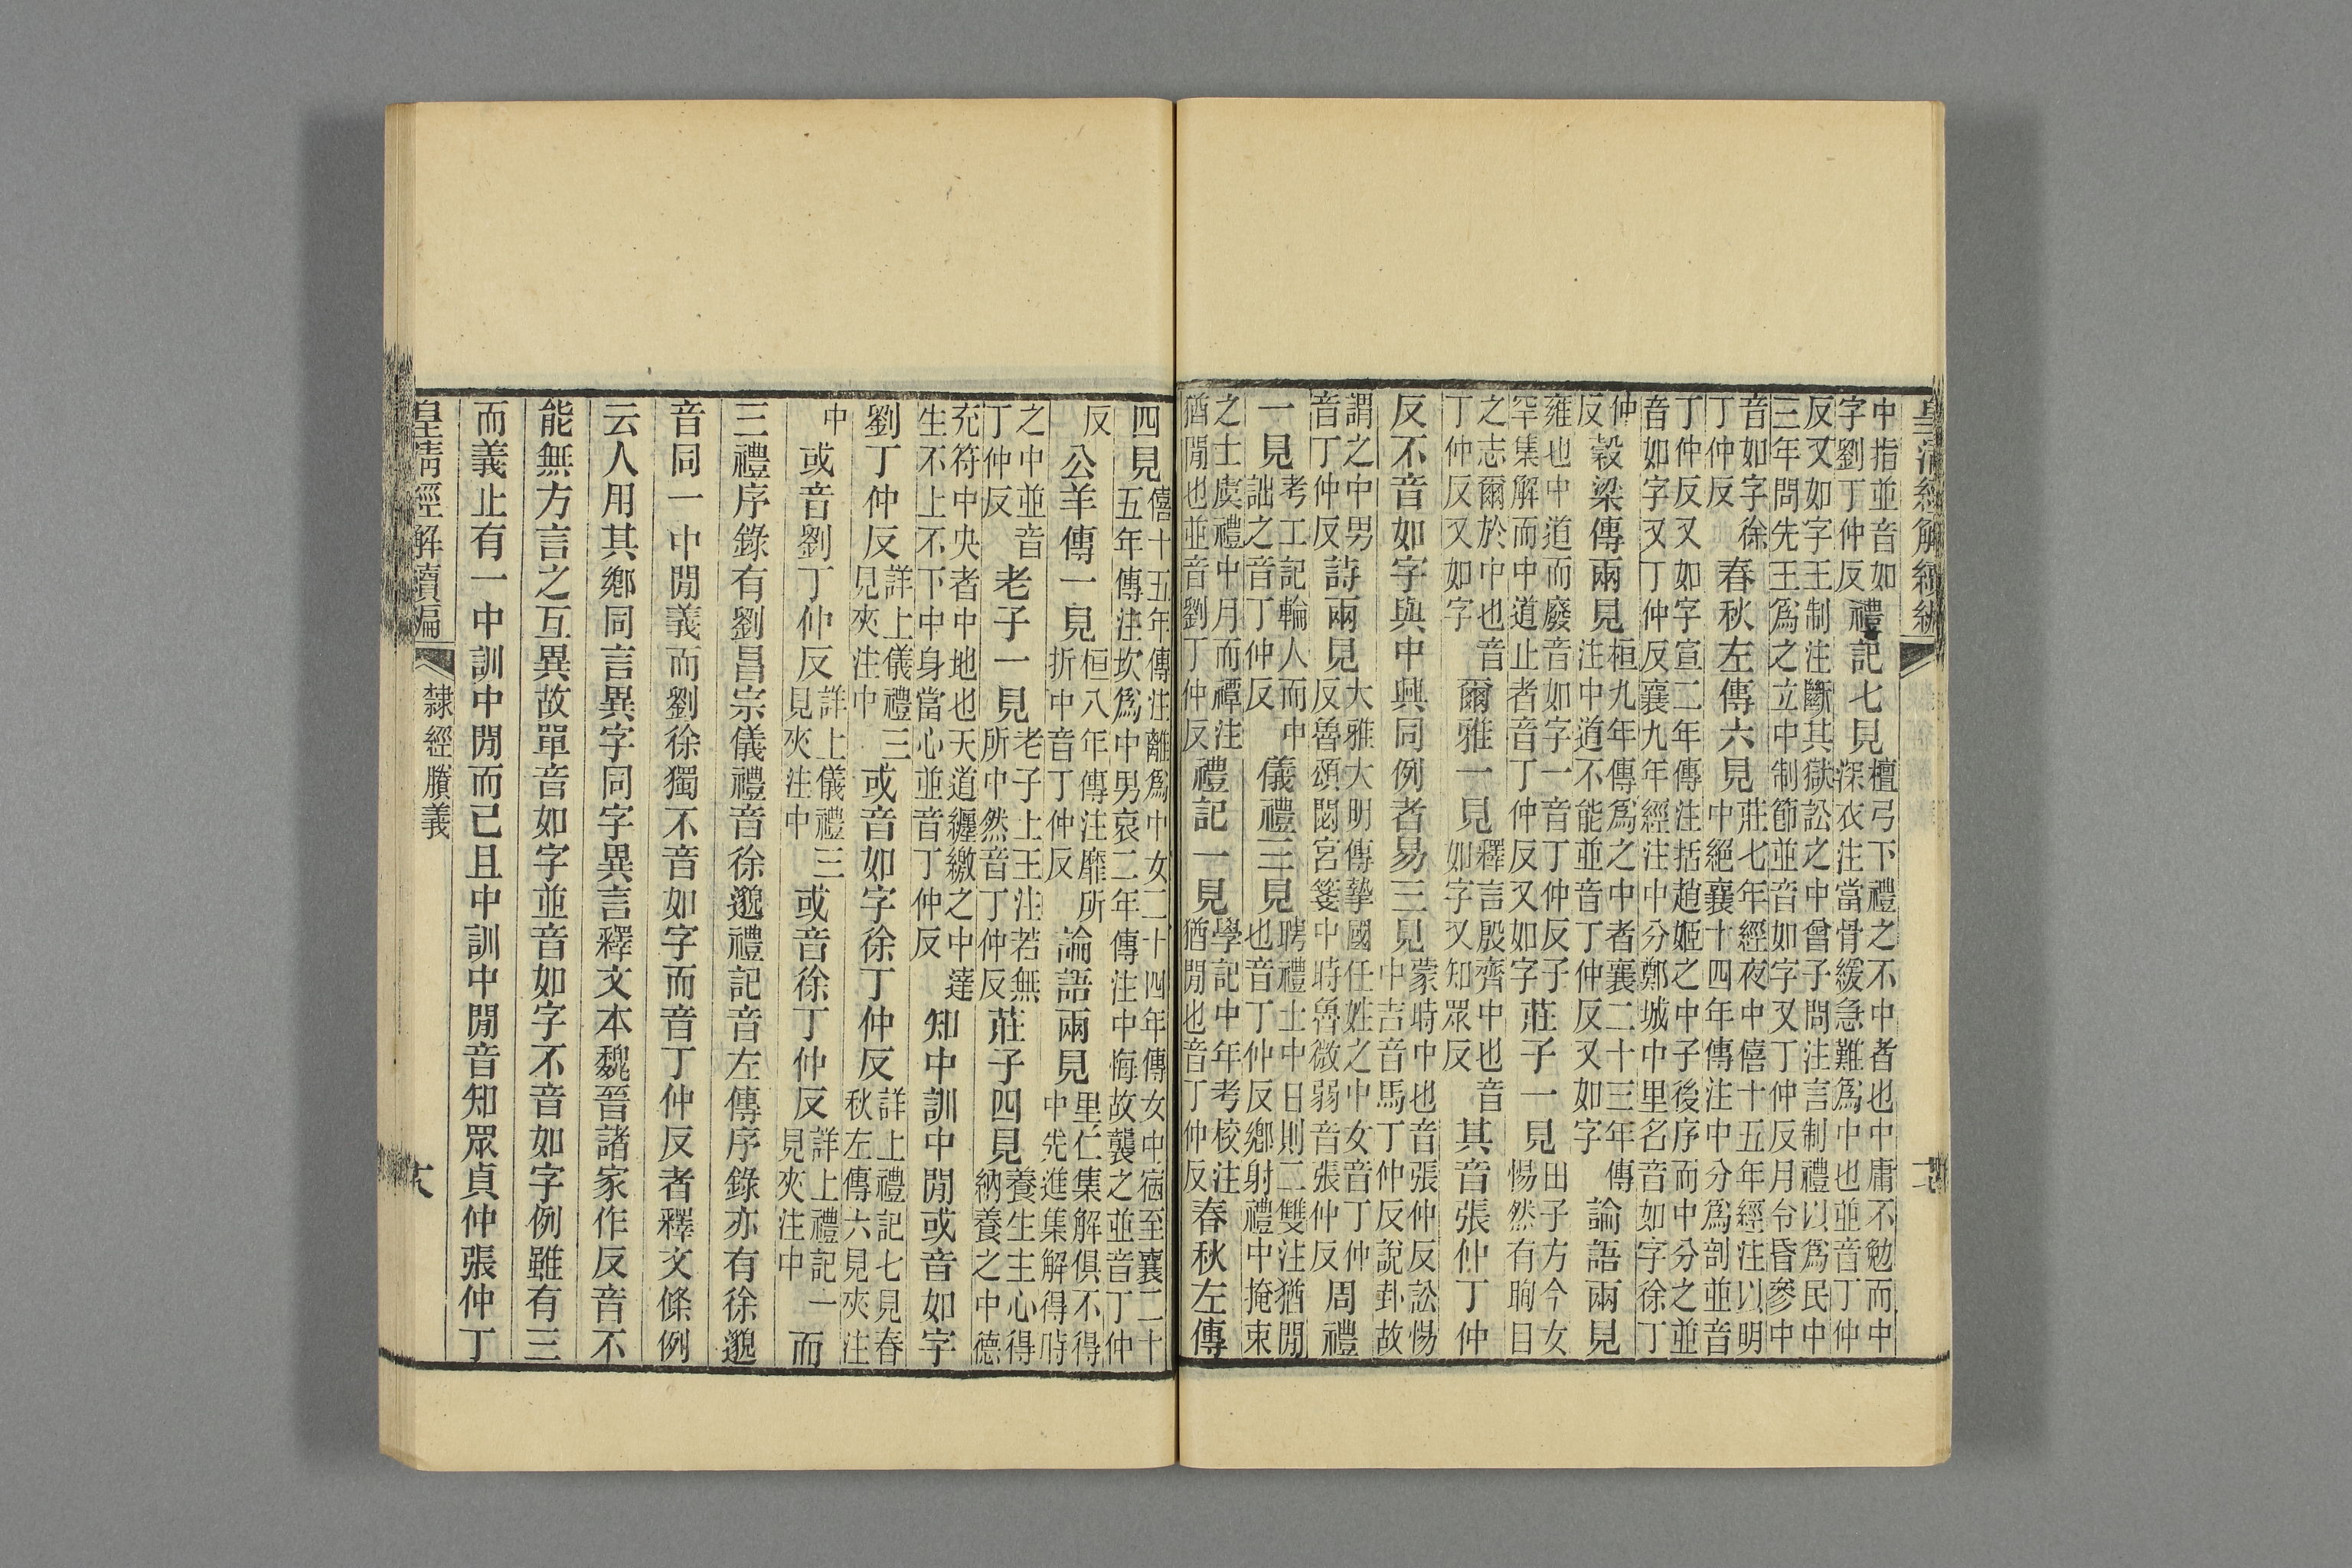 皇清經解續編
中指並音如字劉丁仲反禮記七見檀弓下禮之不中者也中庸不勉而中深衣注當骨緩急難爲中也並音丁仲
反又如字王制注斷其獄訟之中曾子問注言制禮以爲民中三年問先王爲之立中制節並音如字又丁仲反月令昏參中
音如字徐丁仲反春秋左傳六見莊七年經夜中僖十五年經注以明中絕襄十四年傳注中分爲剖並音
丁仲反又如字宣二年傳注括趙姬之中子後序而中分之並音如字又丁仲反襄九年經注中分鄭城中里名音如字徐丁
仲反穀梁傳兩見桓九年傳爲之中者襄二十三年傳注中道不能並音丁仲反又如字論語兩見
雍也中道而廢音如字一音丁仲反子罕集解而中道止者音丁仲反又如字莊子一見田子方今女惕然有眴目
之志爾於中也音丁仲反又如字爾雅一見釋言殷齊中也音如字又知眾反其音張仲丁仲
反不音如字與中興同例者易三見蒙時中也音張仲反訟惕中吉音馬丁仲反說卦故
謂之中男音丁仲反詩兩見大雅大明傳摯國任姓之中女音丁仲反魯頌閟宮箋中時魯微弱音張仲反周禮
一見考工記輪人而中詘之音丁仲反儀禮三見聘禮士中日則二雙注猶閒也音丁仲反鄉射禮中掩束
之士虞禮中月而禫注猶閒也並音劉丁仲反禮記一見學記中年考校注猶閒也音丁仲反春秋左傳
四見僖十五年傳注離爲中女二十四年傳女中宿至襄二十五年傳注坎爲中男哀二年傳注中悔故襲之並音丁仲
反公羊傳一見桓八年傳注靡所折中音丁仲反論語兩見里仁集解俱不得中先進集解得時
之中並音丁仲反老子一見老子上王注若無所中然音丁仲反莊子四見養生主心得納養之中德
充符中央者中地也天道纏繳之中達生不上不下中身當心並音丁仲反知中訓中閒或音如字
劉丁仲反詳上儀禮三見夾注中或音如字徐丁仲反詳上禮記七見春秋左傳六見夾注
中或音劉丁仲反詳上儀禮三見夾注中或音徐丁仲反詳上禮記一見夾注中而
三禮序錄有劉昌宗儀禮音徐邈禮記音左傳序錄亦有徐邈
音同一中閒義而劉徐獨不音如字而音丁仲反者釋文條例
云人用其鄉同言異字同字異言釋文本魏晉諸家作反音不
能無方言之互異故單音如字並音如字不音如字例雖有三
而義止有一中訓中閒而已且中訓中閒音知眾貞仲張仲丁
皇清經解續編 隸經賸義